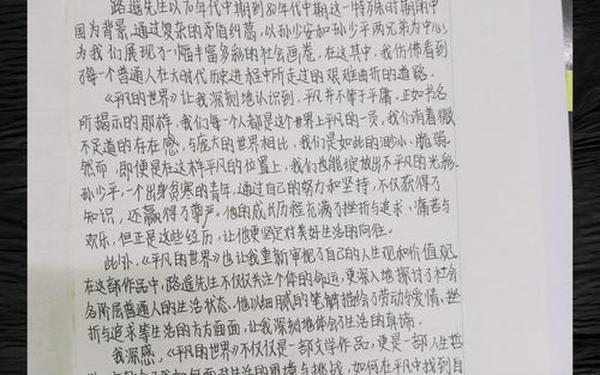 路遥先生以70年代中期到80年代中期这一特殊时期的中
国为背景,通过复杂的矛盾纠葛,以孙少安和孙少平两兄弟为中心
为我们展现了一幅丰富多彩的社会画卷。在这其中,我仿佛看到
了每个普通人在大时代历史进程中所走过的艰难曲折的道路。
《平凡的世界》让我深刻地认识到,平凡并不等于平庸。正如书名
所揭示的那样,我们每一个人都是这个世界上平凡的一员,我们有着微
不足道的存在感,与庞大的世界相比,我们是如此的渺小、脆弱。
然而,即便是在这样平凡的位置上,我们也能绽放出不平凡的光彩。
孙少平,一个出身贫寒的青年,通过自己的努力和坚持,不仅获得了
知识,还赢得了尊严。他的成长历程充满了挫折与追求、痛苦与
欢乐,但正是这些经历,让他更坚定对美好生活的向往。
此外,《平凡的世界》也让我重新审视了自己的人生观和价值观。
在这部作品中,路遥先生不仅仅关注个体的命运,更深入地探讨了社会
各阶层普通人的生活状态。他以细腻的笔触描绘了劳动与爱情、挫
折与追求等生活的方方面面,让我深刻地体会了生活的真谛。
我深感,《平凡的世界》不仅仅是一部文学作品,更是一部人生哲
如何面对生活的困境与挑战,如何在平凡中找到自